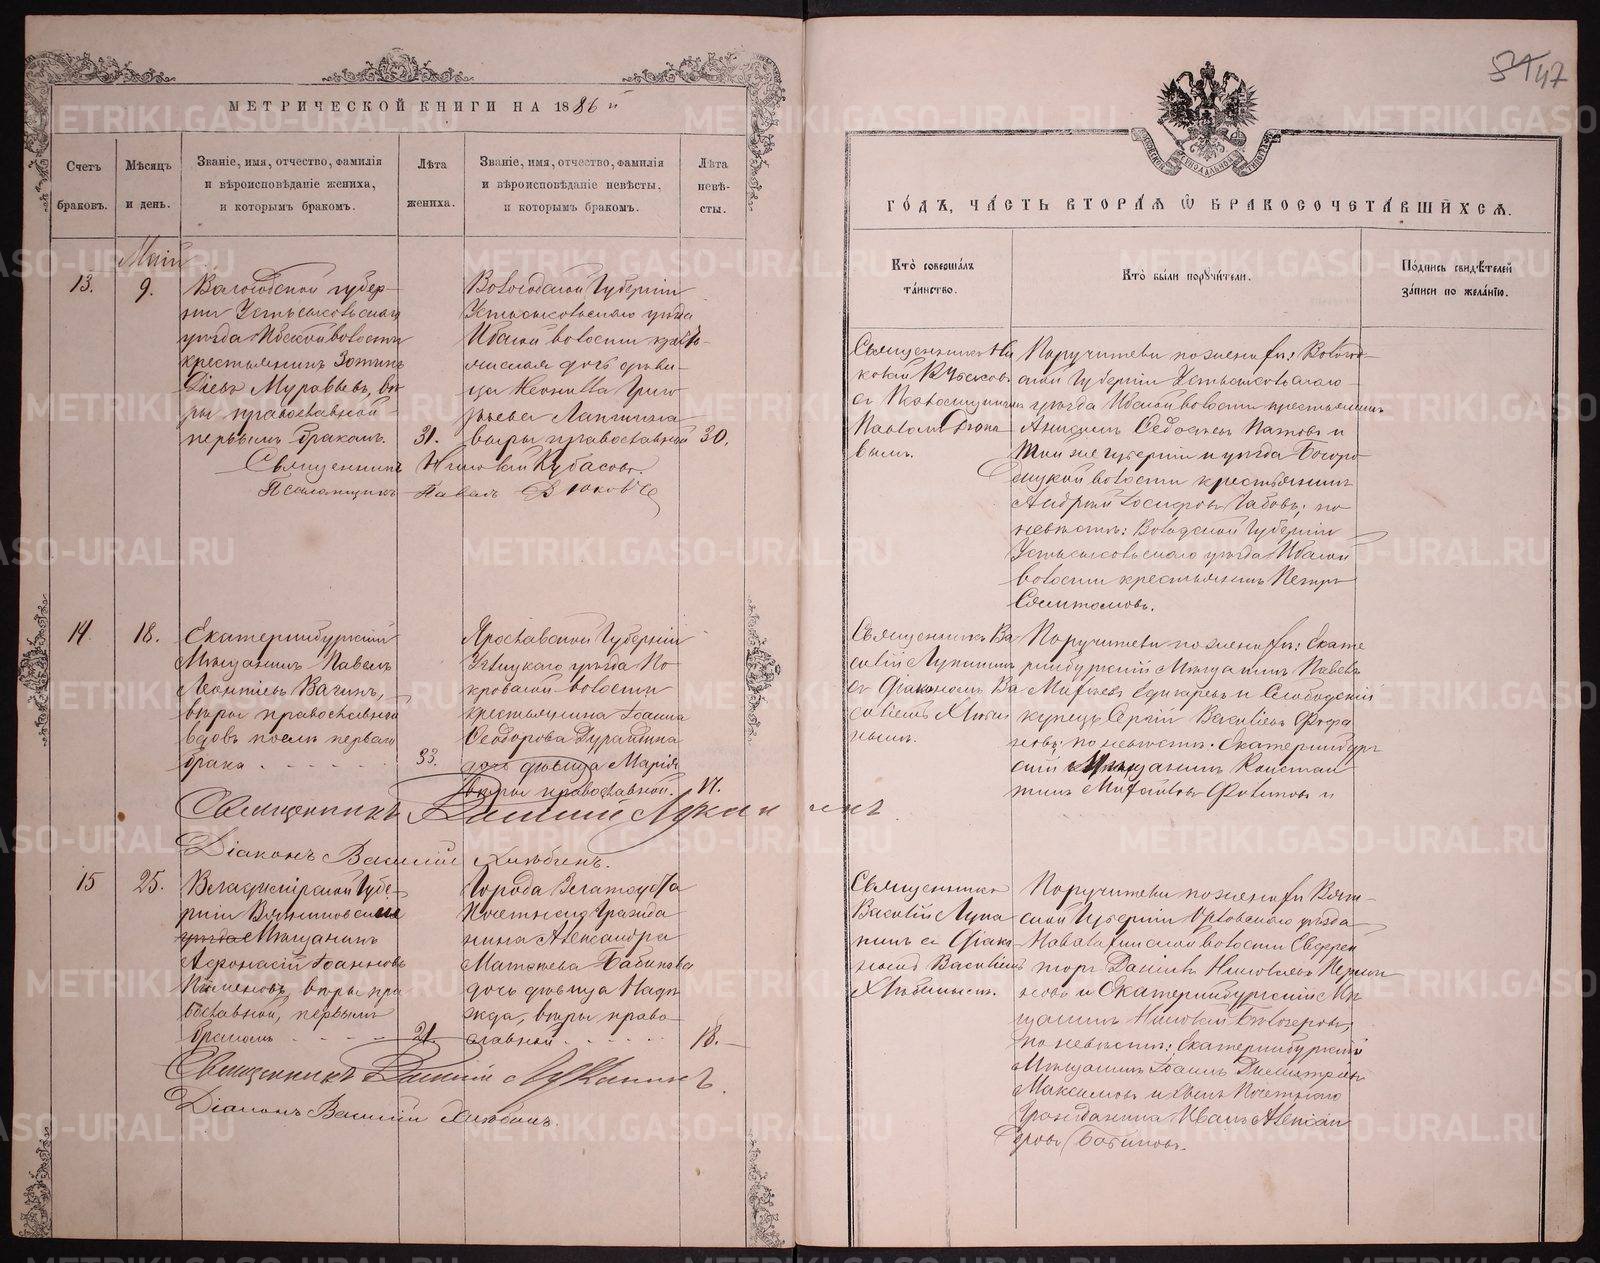 МЕТРИЧЕСКОЙ КНИГИ НА 1886 й
Счетъ браковъ.
Мѣсяцъ и день.
Званіе, имя, отчество, фамилія
и вѣроисповѣданіе жениха,
и которымъ бракомъ.
Лѣта жениха.
Званіе, имя, отчество, фамилія
и вѣроисповѣданіе невѣсты,
и которымъ бракомъ.
Лѣта невѣ-
сты.
Май
13.
9.
Вологодской губер-
ніи Устьсысольскаго
уѣзда Ибской волости
крестьянинъ Зотикъ
Муравьевъ, вѣ
ры православной
первымъ бракомъ.
31.
Вологодской Губерніи
Устьсысольскаго уѣзда
Ибской волости
дочь дѣви-
ца Неонилла Григо
рьева Лапшина
вѣры православной
30.
Священникъ Николай Кубасовъ.
Псаломщикъ Павелъ
14.
18.
Екатеринбургскій
Мѣщанинъ Павелъ
Леонтіевъ Вагинъ,
вѣры православной
вдовъ послѣ перваго
брака
33.
Ярославской Губерніи
Углицкаго уѣзда По
кровской волости
крестьянина Іоанна
Ѳеодорова
дочь дѣвица Марія
вѣры православной.
17.
Священникъ Василій Луканинъ
Діаконъ Василій Хлѣбинъ.
15
25.
Владимірской Губе-
рніи Вязниковскій
уѣзда Мѣщанинъ
Афонасій Іоанновъ
Пименовъ, вѣры пра
вославной, первымъ
бракомъ
21.
Города Златоуста
Почетнаго Гражда
нина Александра
Бабинова
дочь дѣвица Наде
жда, вѣры право
славной
18.
Священникъ Василій Луканинъ
Діаконъ Василій Хлѣбинъ.
47
ГОДЪ, ЧАСТЬ ВТОРАЯ Ѡ БРАКОСОЧЕТАВШИХСЯ.
Кто совершалъ
таинство.
Кто были поручители.
Подпись свидѣтелей
записи по желанію.
Священникъ Ни
колай Кубасовъ
съ Псаломщикомъ
Павломъ
Поручители по женихѣ: Вологод-
ской Губерніи Устьсысольскаго
уѣзда Ибской волости крестьянинъ
и
той же губерніи и уѣзда Богоро-
дицкой волости крестьянинъ
Андрей Іосифовъ Габовъ; по
невѣстѣ: Вологодской Губерніи
Устьсысольскаго уѣзда Ибской
волости крестьянинъ Петръ
Священникъ Ва
силій Луканинъ
съ діакономъ Ва
силіемъ Хлѣби
нымъ.
Поручители по женихѣ: Екате
ринбургскій Мѣщанинъ Павелъ
и Слободскій
купецъ Сергій Василіевъ
по невѣстѣ: Екатеринбург
скій Мѣщанинъ Констан
тинъ Михайловъ Филиновъ и
Священникъ
Василій Лука
нинъ съ діако
номъ Василіемъ
Хлѣбинымъ.
Поручители по женихѣ Вят-
ской Губерніи Орловскаго уѣзда
волости
Даніилъ Николаевъ
и Екатеринбургскій Мѣ
щанинъ Николай Бѣлозеровъ,
по невѣстѣ: Екатеринбургскій
Мѣщанинъ Іоаннъ Димитріевъ
Максимовъ и сынъ Почетнаго
Гражданина Иванъ Алексан
дровъ Бабиновъ.
METRIKI.GASO-URAL.RU